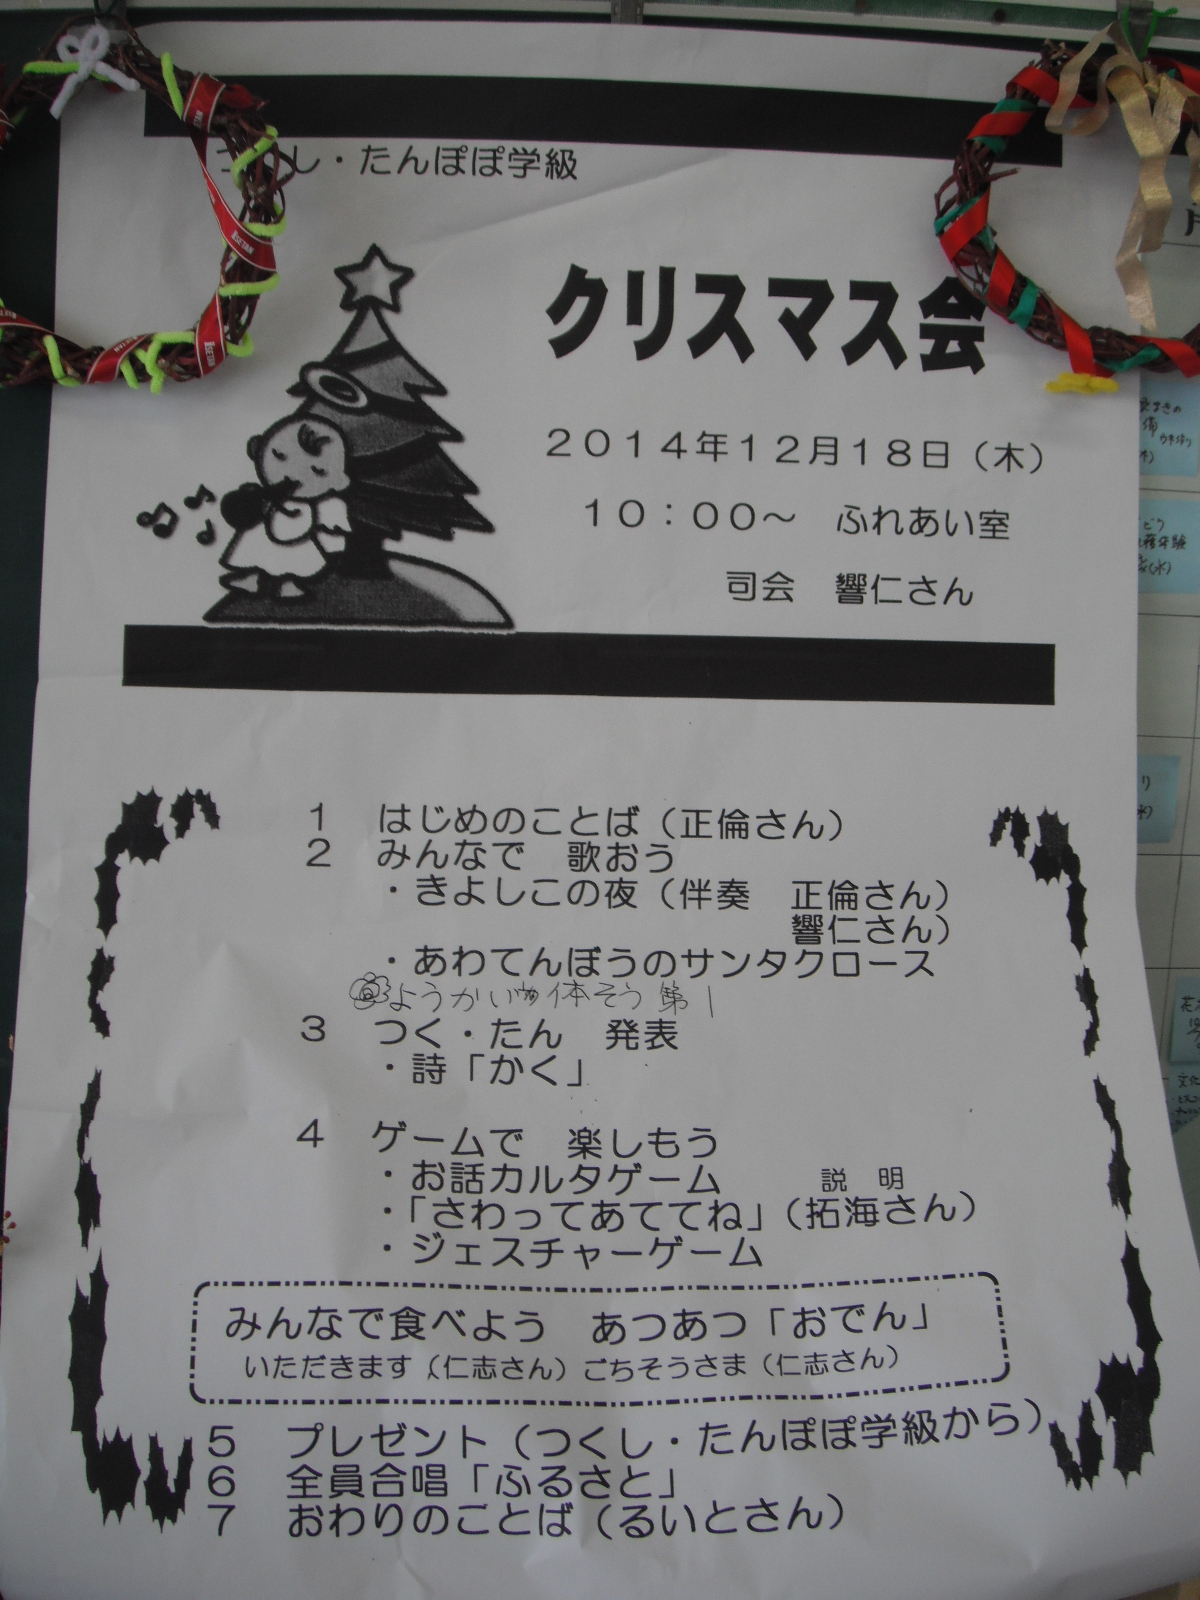 つくし・たんぽぽ学級
クリスマス会
2014年12月18日（木）
10：00～　ふれあい室
司会　響仁さん
1　はじめのことば（正倫さん）
2　みんなで　歌おう
・きよしこの夜（伴奏　正倫さん）
響仁さん）
・あわてんぼうのサンタクロース
ようかい体そう第1
3　つく・たん　発表
・詩「かく」
4　ゲームで　楽しもう
・お話カルタゲーム　説　明
・「さわってあててね」（拓海さん）
・ジェスチャーゲーム
みんなで食べよう　あつあつ「おでん」
いただきます（仁志さん）ごちそうさま（仁志さん）
5　プレゼント（つくし・たんぽぽ学級から）
6　全員合唱「ふるさと」
7　おわりのことば（るいとさん）
ISETAN